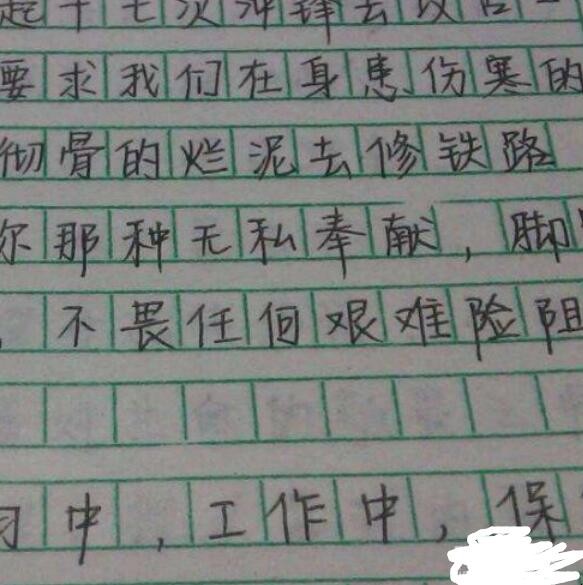 起十七次冲锋去攻占
要求我们在身患伤寒的
彻骨的烂泥去修铁路
你那种无私奉献，脚
，不畏任何艰难险阻
习中，工作中，保